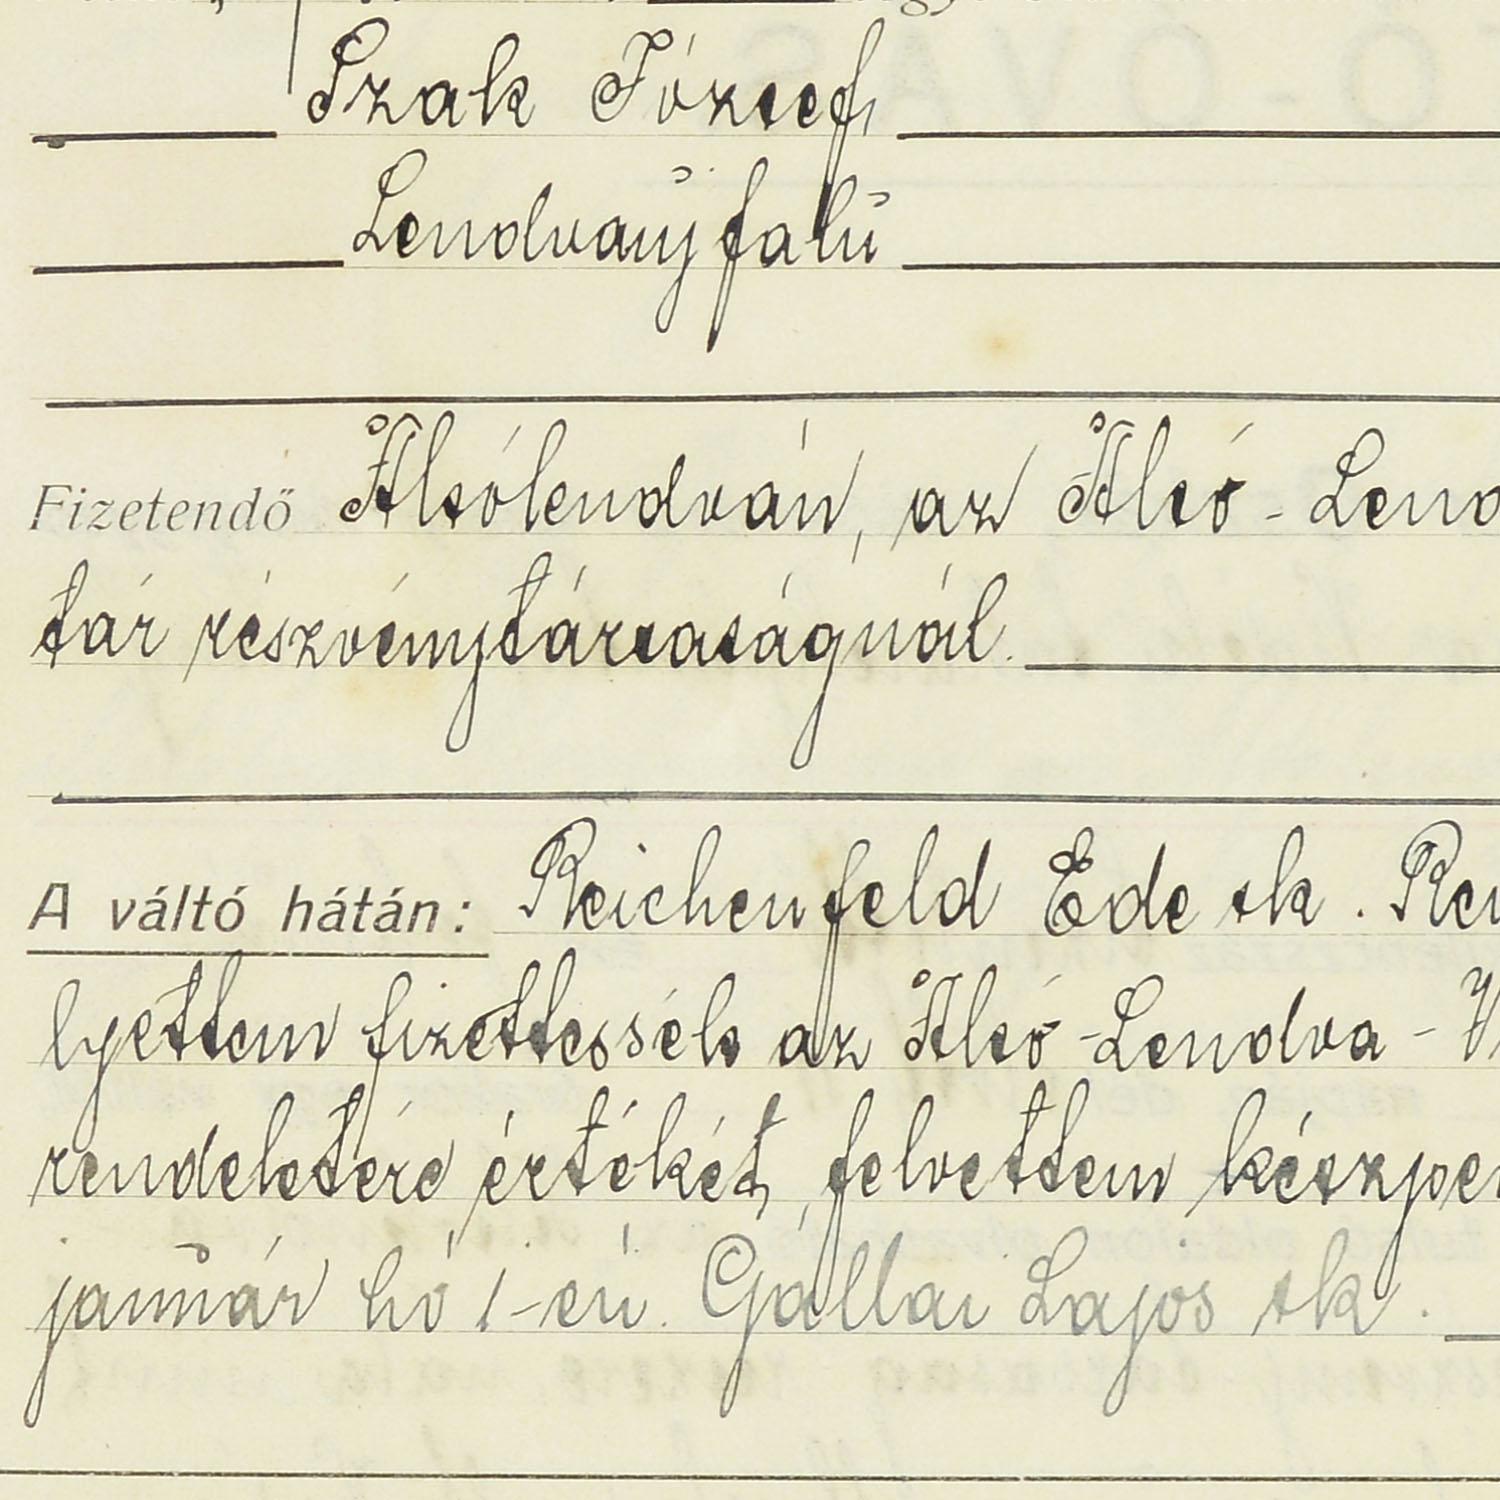 Szak József,
Lendvaújfalu
Fizetendő Alsólendván, az Alsó-Lend
tár részvénytársaságnál.
A váltó hátán: Reichenfeld Ede sk. Ren
lyettem fizettessék az Alsó-Lendva-V
rendeletére értékét felvettem készpén
január hó 1-én. Gállai Lajos sk.